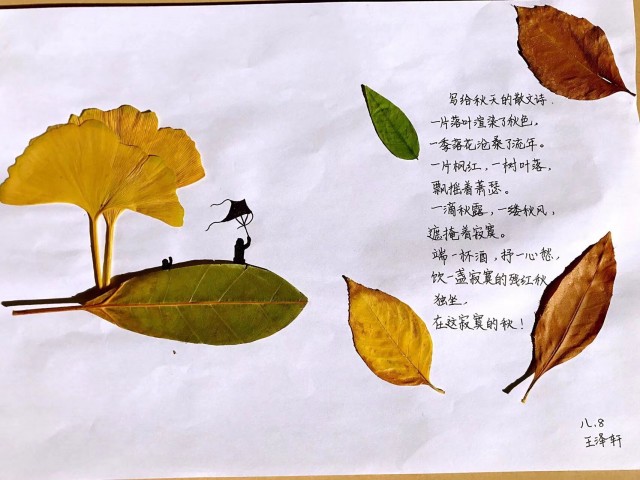 写给秋天的散文诗.
一片落叶渲染了秋色，
一季落花沧桑了流年。
一片枫红，一树叶落，
飘摇着萧瑟。
一滴秋露，一缕秋风，
遮掩着寂寞。
端一杯酒，抒一心愁，
饮一盏寂寞的残红秋
独坐，
在这寂寞的秋！
八.8
王泽轩